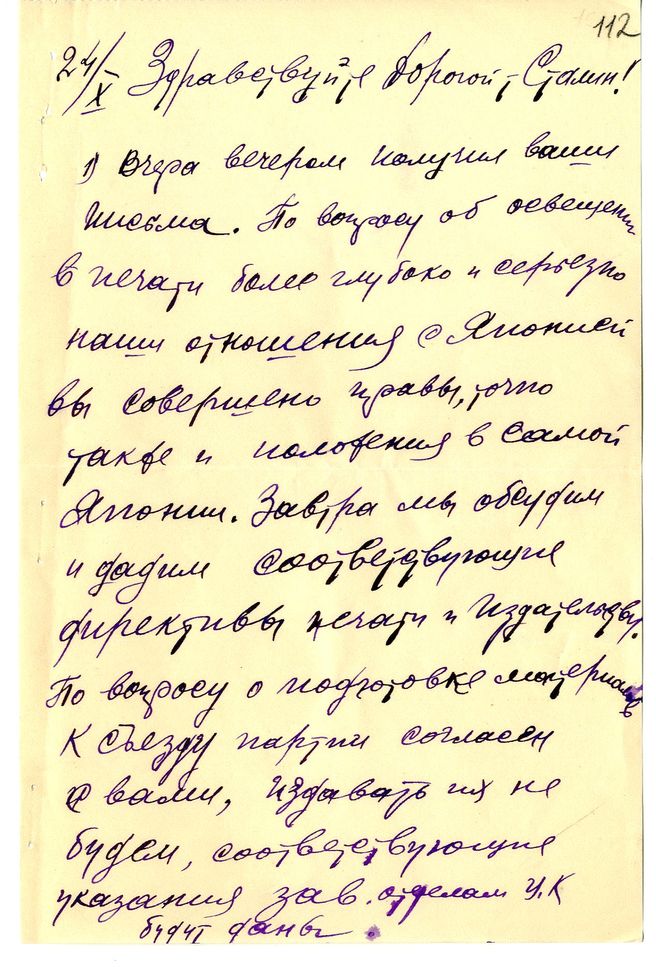 112
24/X Здравствуйте дорогой т Сталин!
1) Вчера вечером получил ваши
письма. По вопросу об освещении
в печати более глубоко и серьезно
наши отношения с Японией
вы совершено правы, точно
также и положения в самой
Японии. Завтра мы обсудим
и дадим соответствующие
директивы печати и Издательству.
По вопросу о подготовке материалов
к съезду партии согласен
с вами, издавать их не
будем, соответствующие
указания зав. отделам Ц.К
будут даны.